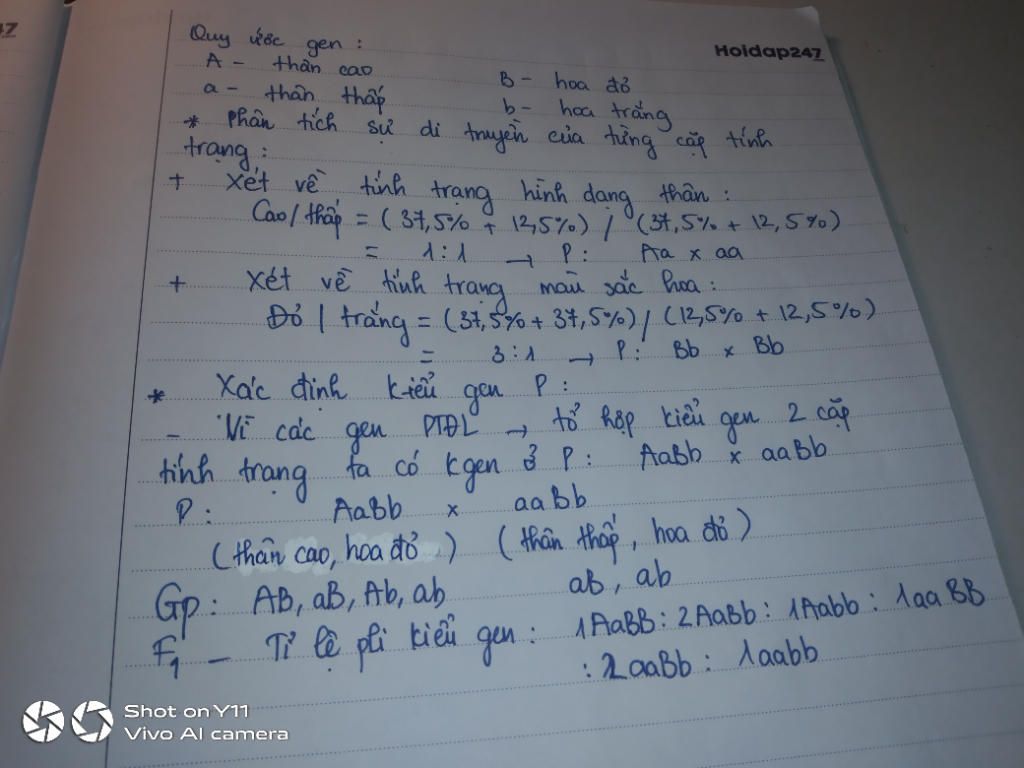 47
Hoidap247
Quy ước gen :
A - thân cao B - hoa đỏ
a - thân thấp b - hoa trắng
* phân tích sự di truyền của từng cặp tính
trạng :
+ Xét về tính trạng hình dạng thân :
Cao / thấp = ( 37,5% + 12,5% ) / ( 37,5% + 12,5% )
= 1 : 1 → P : Aa x aa
+ Xét về tính trạng màu sắc hoa :
Đỏ / trắng = ( 37,5% + 37,5% ) / ( 12,5% + 12,5% )
= 3 : 1 → P : Bb x Bb
* Xác định kiểu gen P :
- Vì các gen PTĐL → tổ hợp kiểu gen 2 cặp
tính trạng ta có kgen ở P : AaBb x aaBb
P : AaBb x aaBb
( thân cao, hoa đỏ ) ( thân thấp, hoa đỏ )
Gp : AB, aB, Ab, ab aB, ab
F1 - Tỉ lệ pli kiểu gen : 1AaBB : 2AaBb : 1Aabb : 1aaBB
: 2aaBb : 1aabb
Shot on Y11
Vivo AI camera